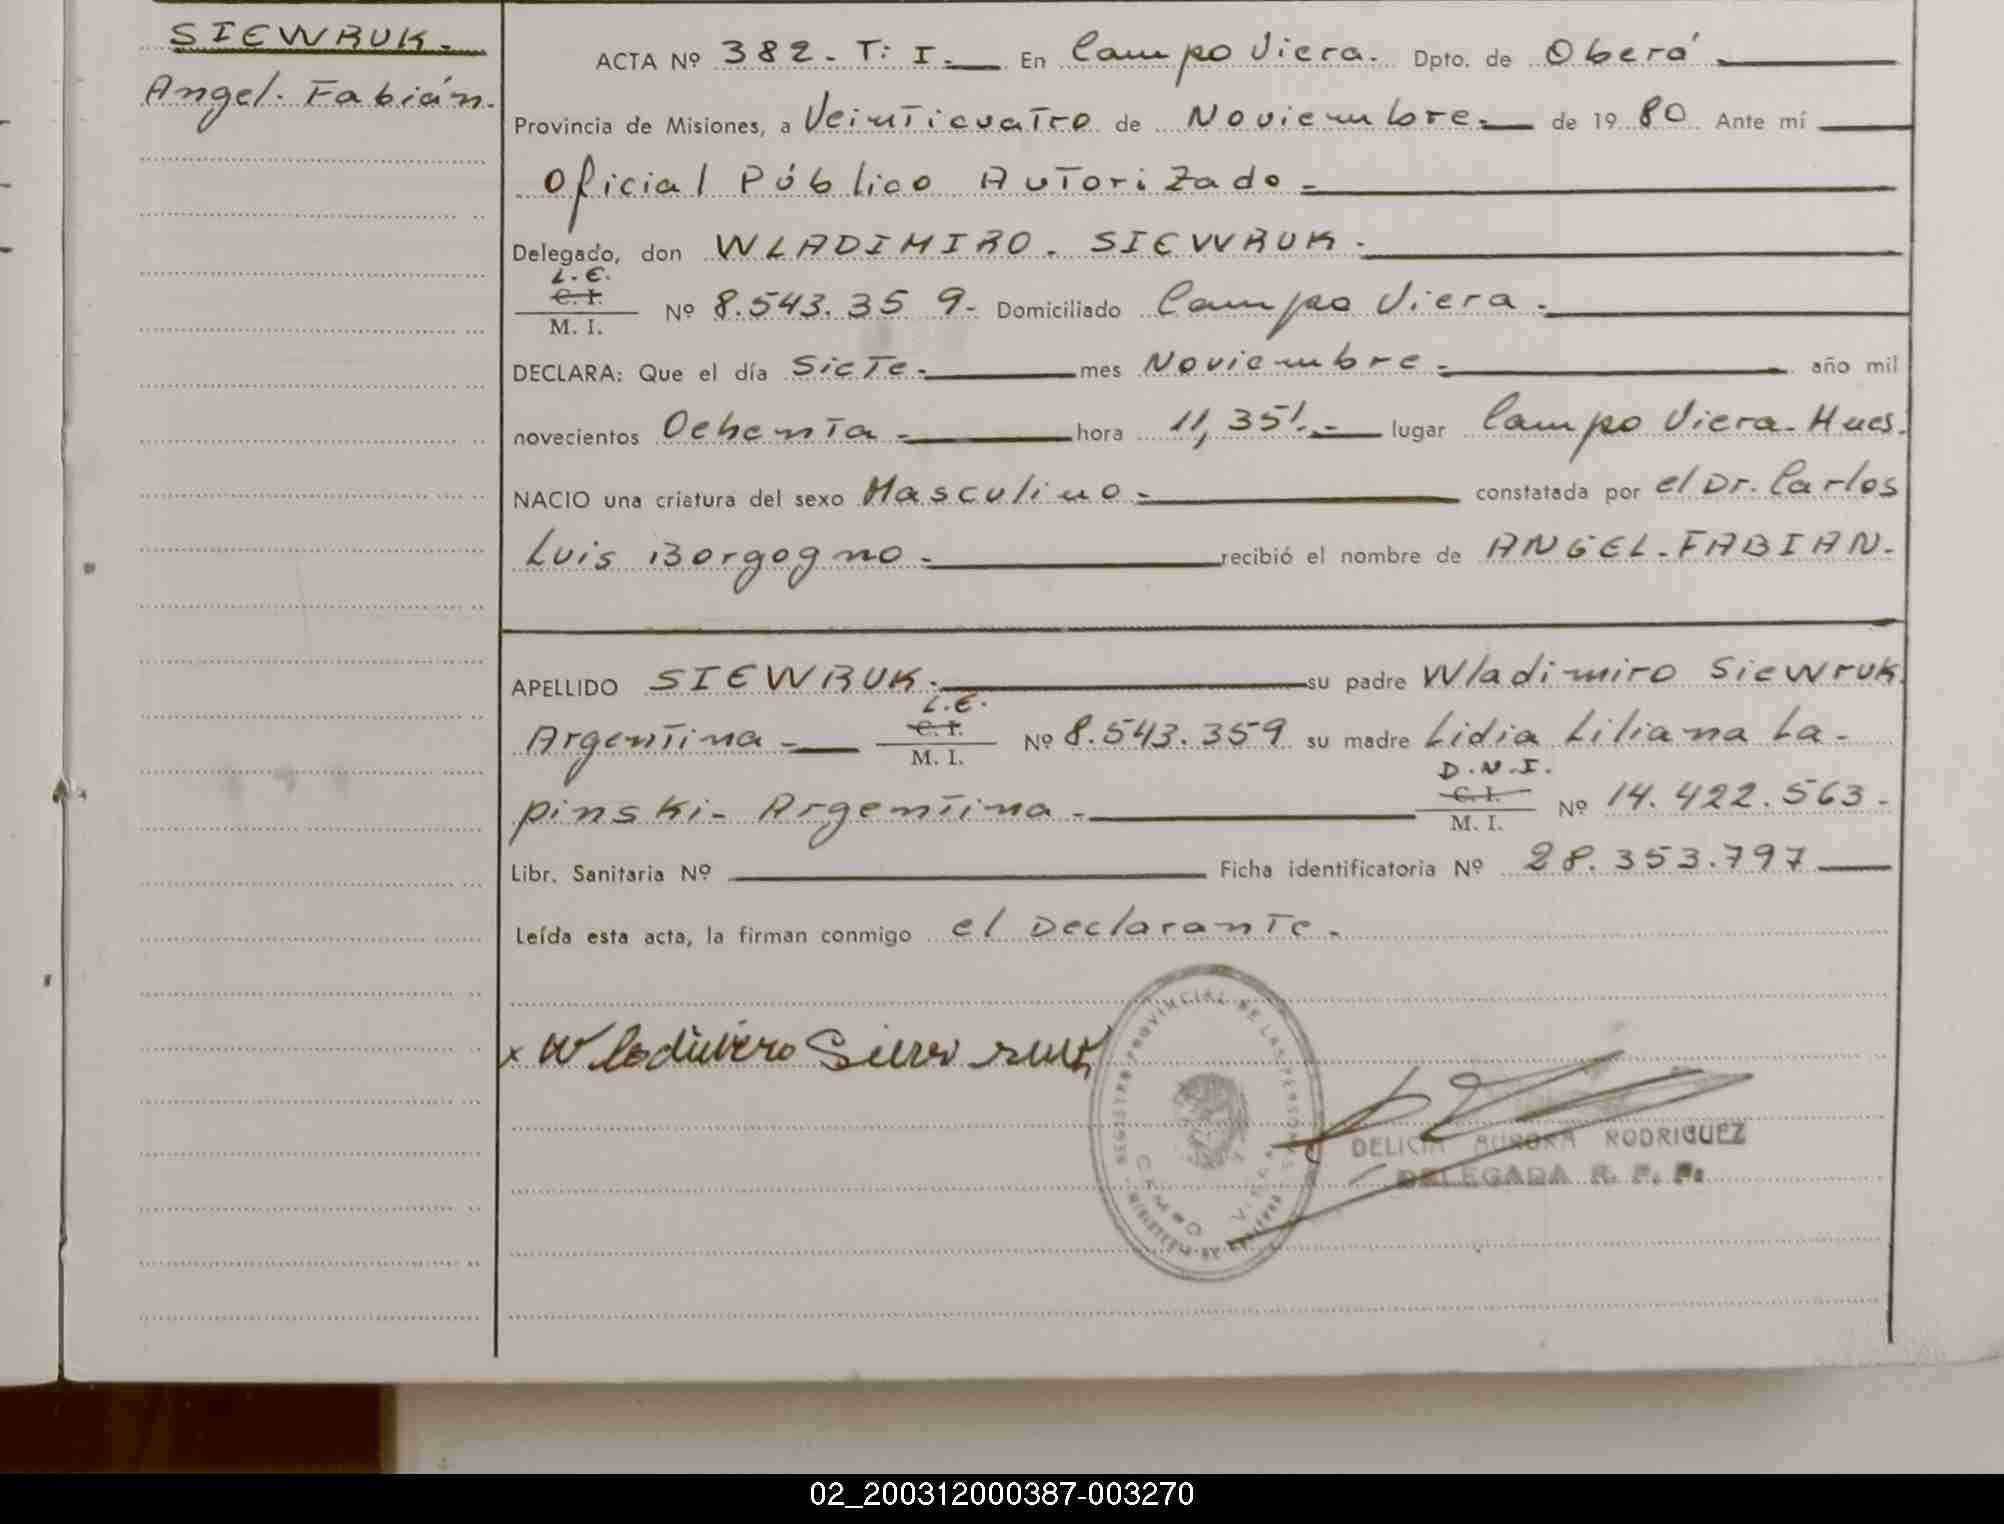 SIEWRUK.
Angel. Fabián.
ACTA Nº 382 - T: I. En Campo Viera. Dpto. de Oberá
Provincia de Misiones, a Veinticuatro de Noviembre. de 19 80 Ante mí
Oficial Público Autorizado
Delegado, don WLADIMIRO. SIEWRUK.
L.E.
C. I.
M. I.
Nº 8.543.359- Domiciliado Campo Viera.
DECLARA: Que el día Siete mes Noviembre año mil
novecientos Ochenta hora 11,35'. lugar Campo Viera-Mnes.
NACIO una criatura del sexo Masculino constatada por el Dr. Carlos
Luis Borgogno recibió el nombre de ANGEL-FABIAN.
APELLIDO SIEWRUK. su padre Wladimiro Siewruk.
L.E.
Argentina C. I. Nº 8.543.359 su madre Lidia Liliana La-
M. I.
D.N.I.
pinski- Argentina C. I. Nº 14.422.563-
M. I.
Libr. Sanitaria Nº Ficha identificatoria Nº 28.353.797
Leída esta acta, la firman conmigo el Declarante.
x Wladimiro Siewruk
REGISTRO PROVINCIAL DE LAS PERSONAS
CAMPO VIERA
DELICIA AURORA RODRIGUEZ
DELEGADA R. P. P.
02_200312000387-003270